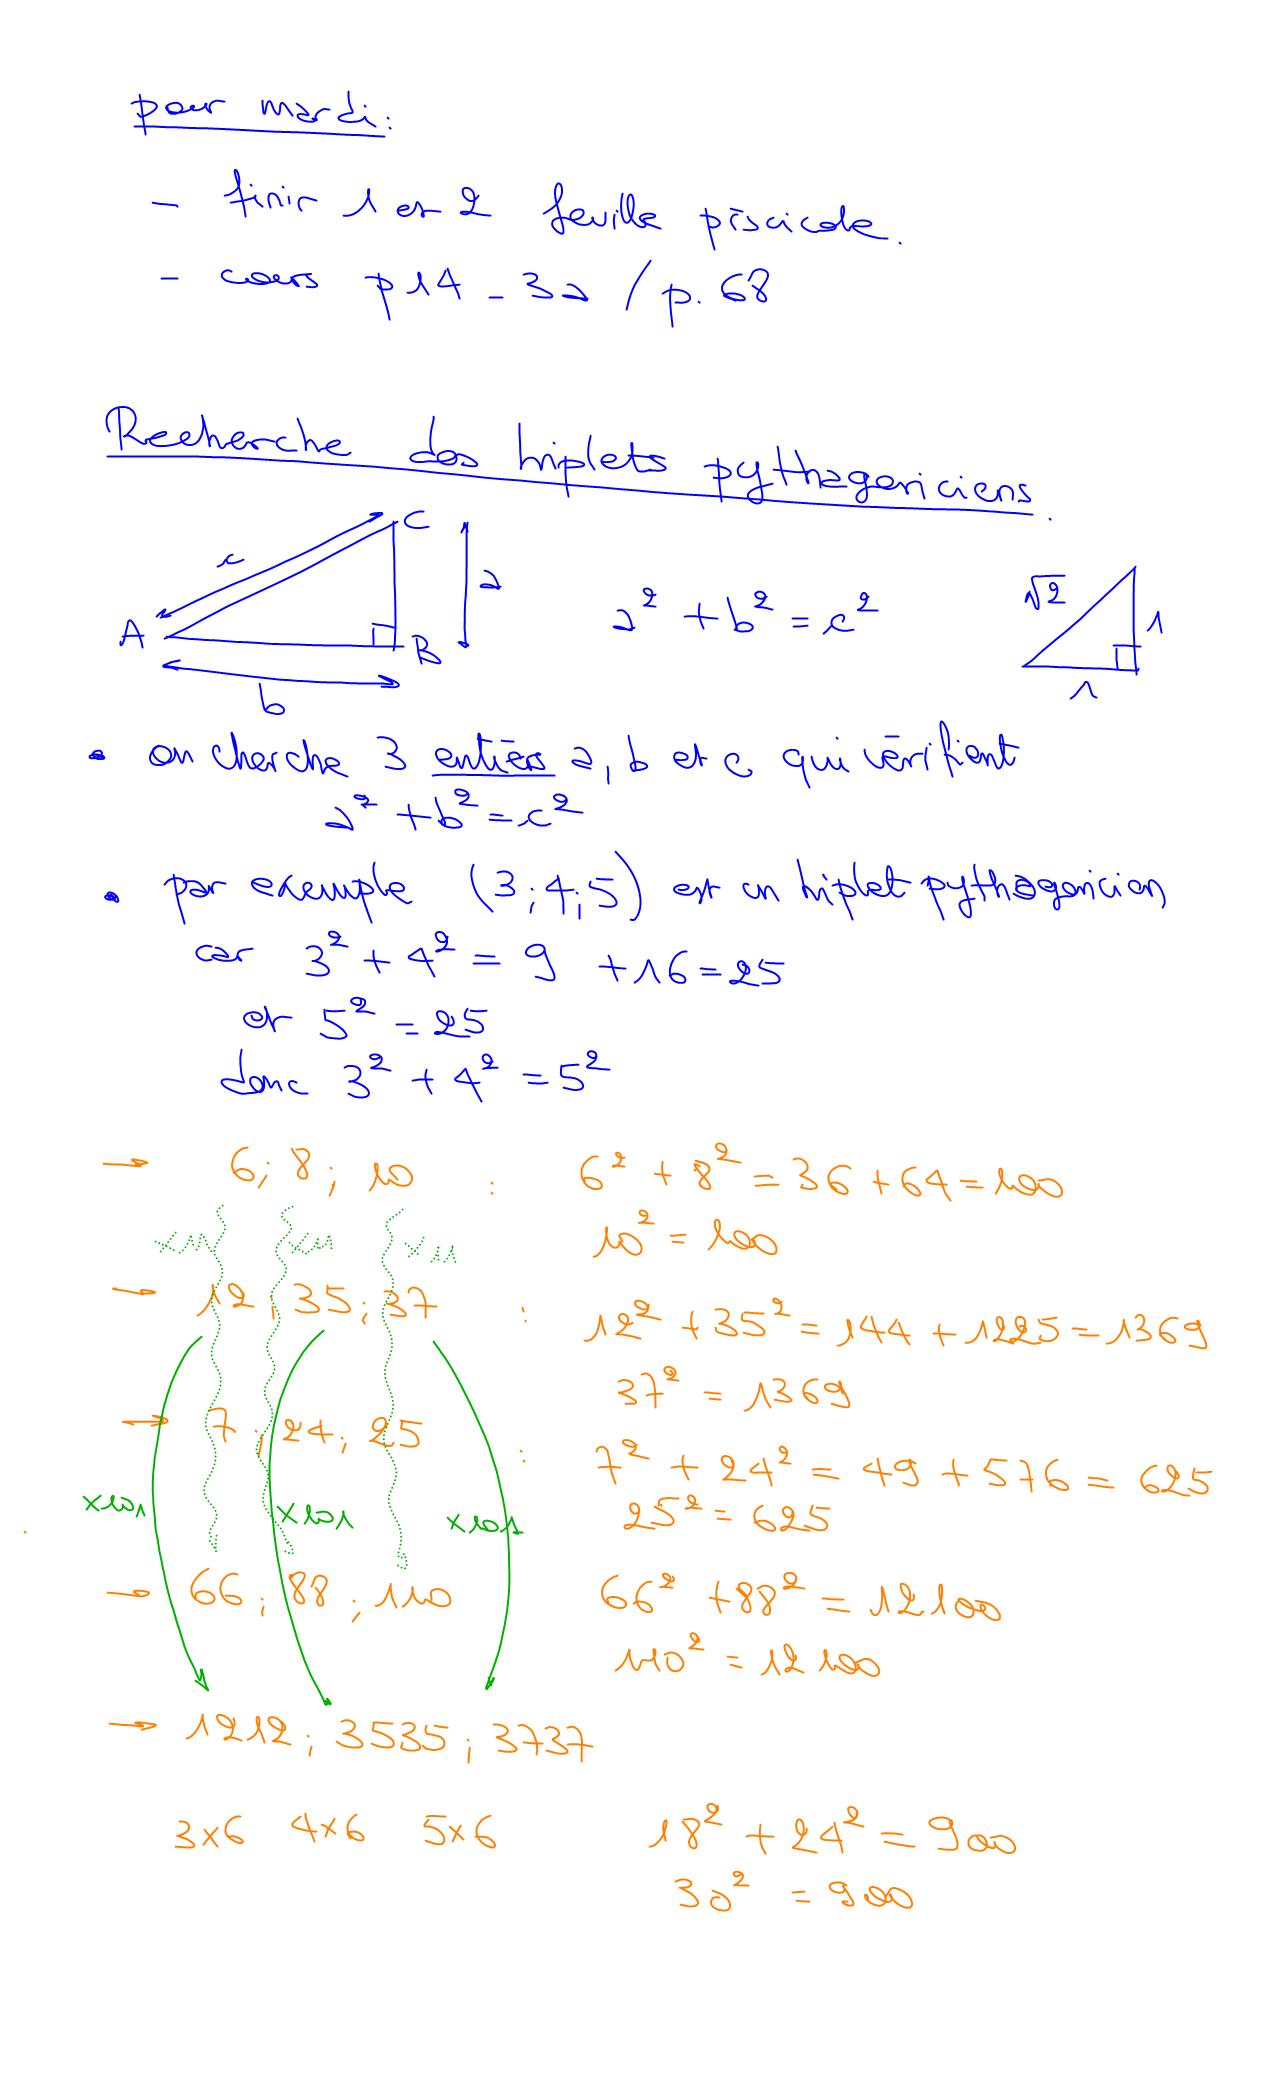 pour mardi:
- finir 1 et 2 feuille piscicole.
- cours p14 - 3a / p. 68
Recherche des triplets pythagoriciens.
C
c
a
A
B
b
a² + b² = c²
√2
1
1
• on cherche 3 entiers a, b et c qui vérifient
a² + b² = c²
• par exemple (3;4;5) est un triplet pythagoricien
car 3² + 4² = 9 + 16 = 25
et 5² = 25
donc 3² + 4² = 5²
→ 6; 8; 10 : 6² + 8² = 36 + 64 = 100
10² = 100
x11 x11 x11
→ 12; 35; 37 : 12² + 35² = 144 + 1225 = 1369
37² = 1369
→ 7; 24; 25 : 7² + 24² = 49 + 576 = 625
25² = 625
x101 x101 x101
→ 66; 88; 110 66² + 88² = 12100
110² = 12 100
→ 1212; 3535; 3737
3x6 4x6 5x6 18² + 24² = 900
30² = 900